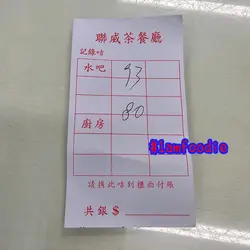 聯威茶餐廳
記錄咭
水吧 93
80
廚房
$1amfoodie
請携此咭到櫃面付賬
共銀 $